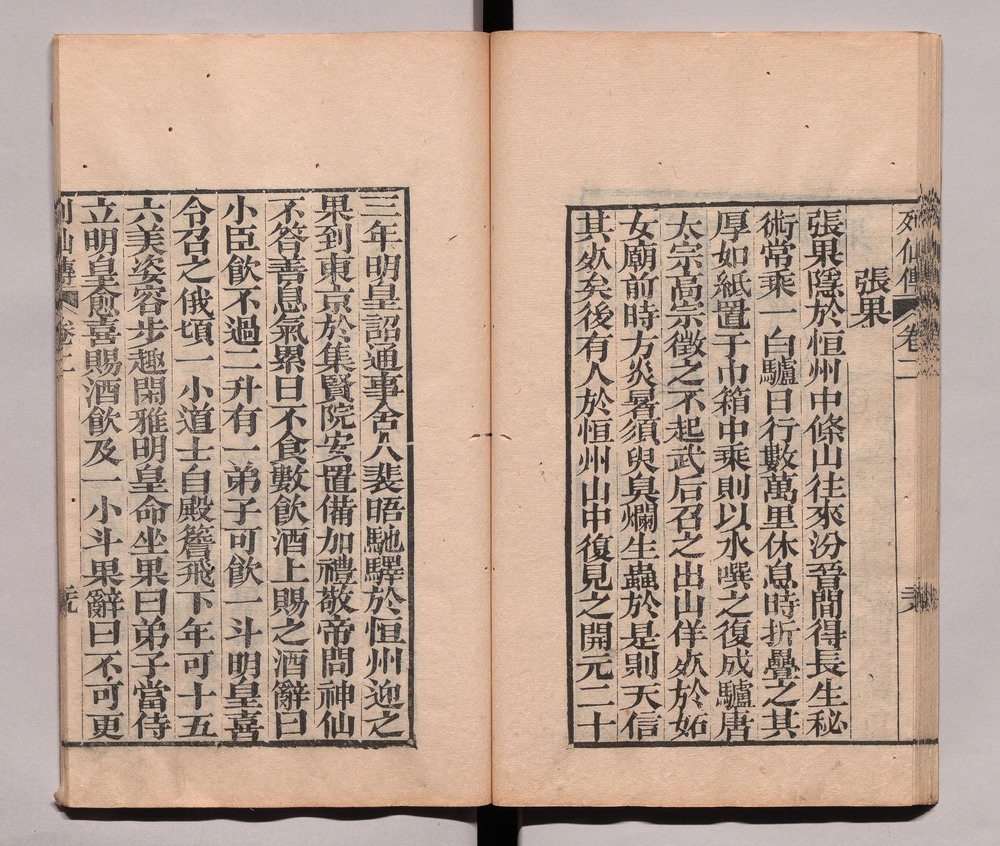 列仙傳 卷二
張果
張果隱於恒州中條山往來汾晉間得長生秘
術常乘一白驢日行數萬里休息時折疊之其
厚如紙置于巾箱中乘則以水噀之復成驢唐
太宗高宗徵之不起武后召之出山佯死於妬
女廟前時方炎暑須臾臭爛生蟲於是則天信
其死矣後有人於恒州山中復見之開元二十
三年明皇詔通事舍人裴晤馳驛於恒州迎之
果到東京於集賢院安置備加禮敬帝問神仙
不答善息氣累日不食數飲酒上賜之酒辭曰
小臣飲不過二升有一弟子可飲一斗明皇喜
令召之俄頃一小道士自殿簷飛下年可十五
六美姿容步趣閑雅明皇命坐果曰弟子當侍
立明皇愈喜賜酒飲及一小斗果辭曰不可更
列仙傳 卷二